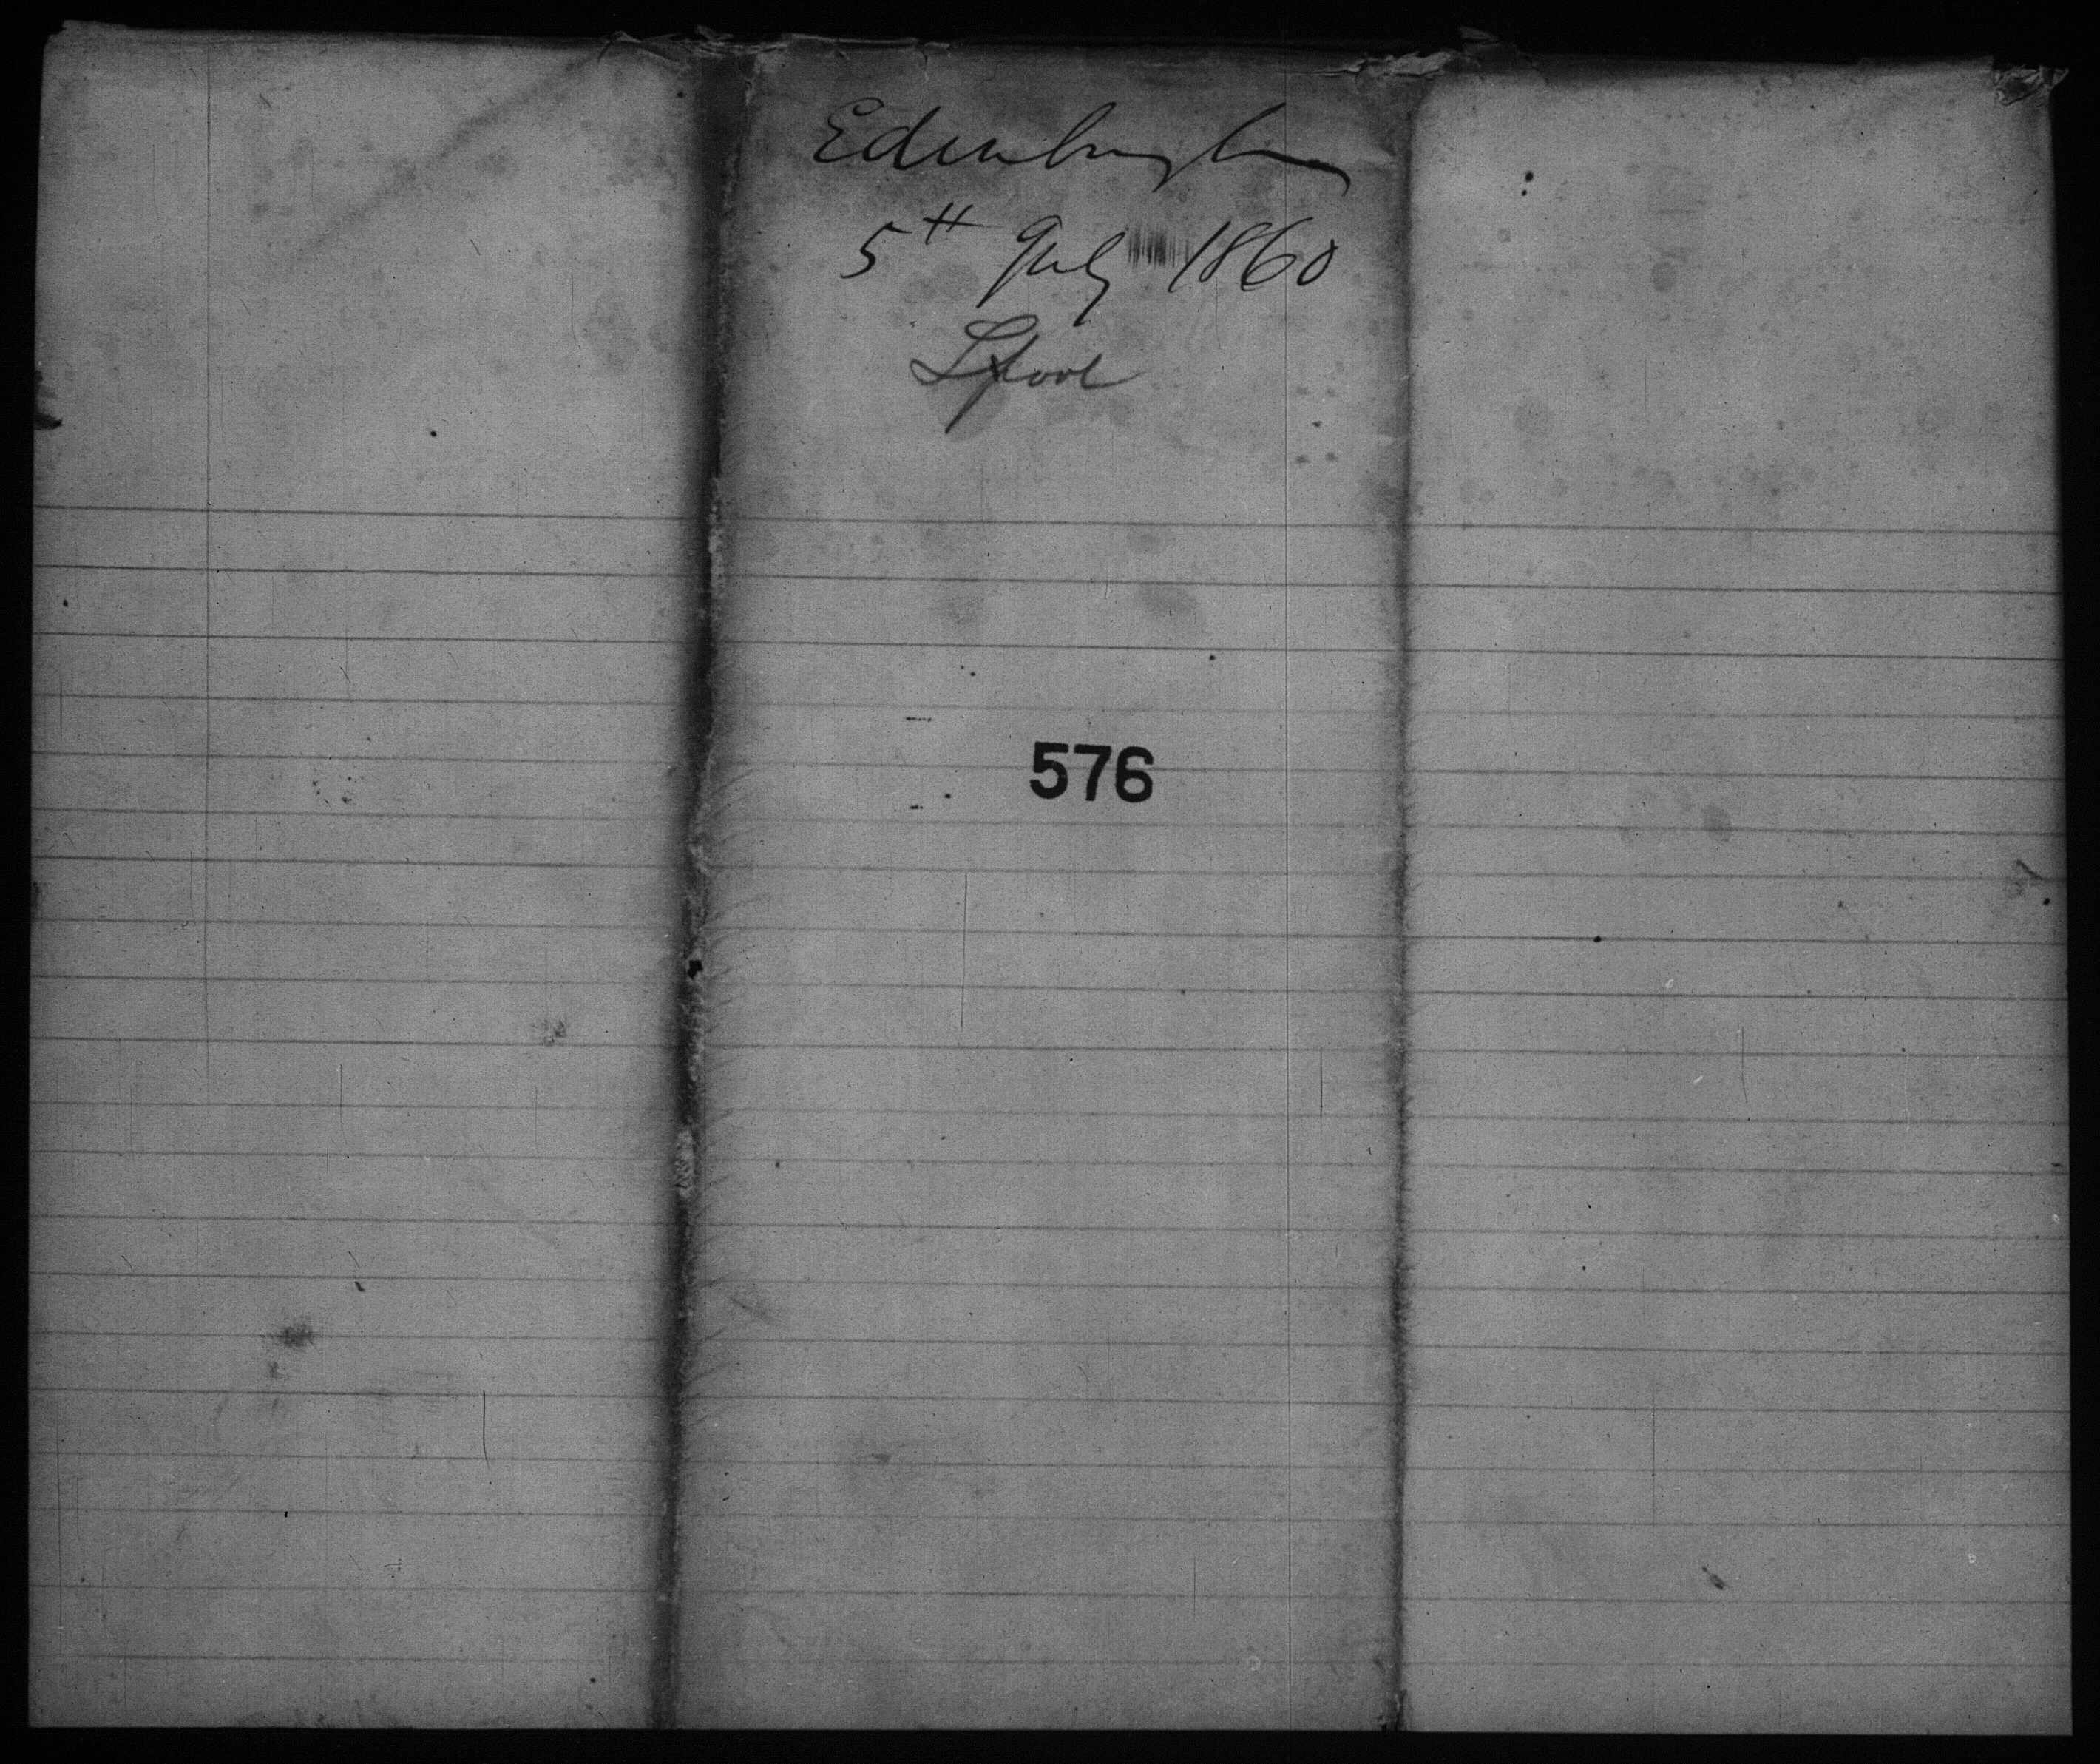 Edinburgh
5th July 1860
L'pool
576